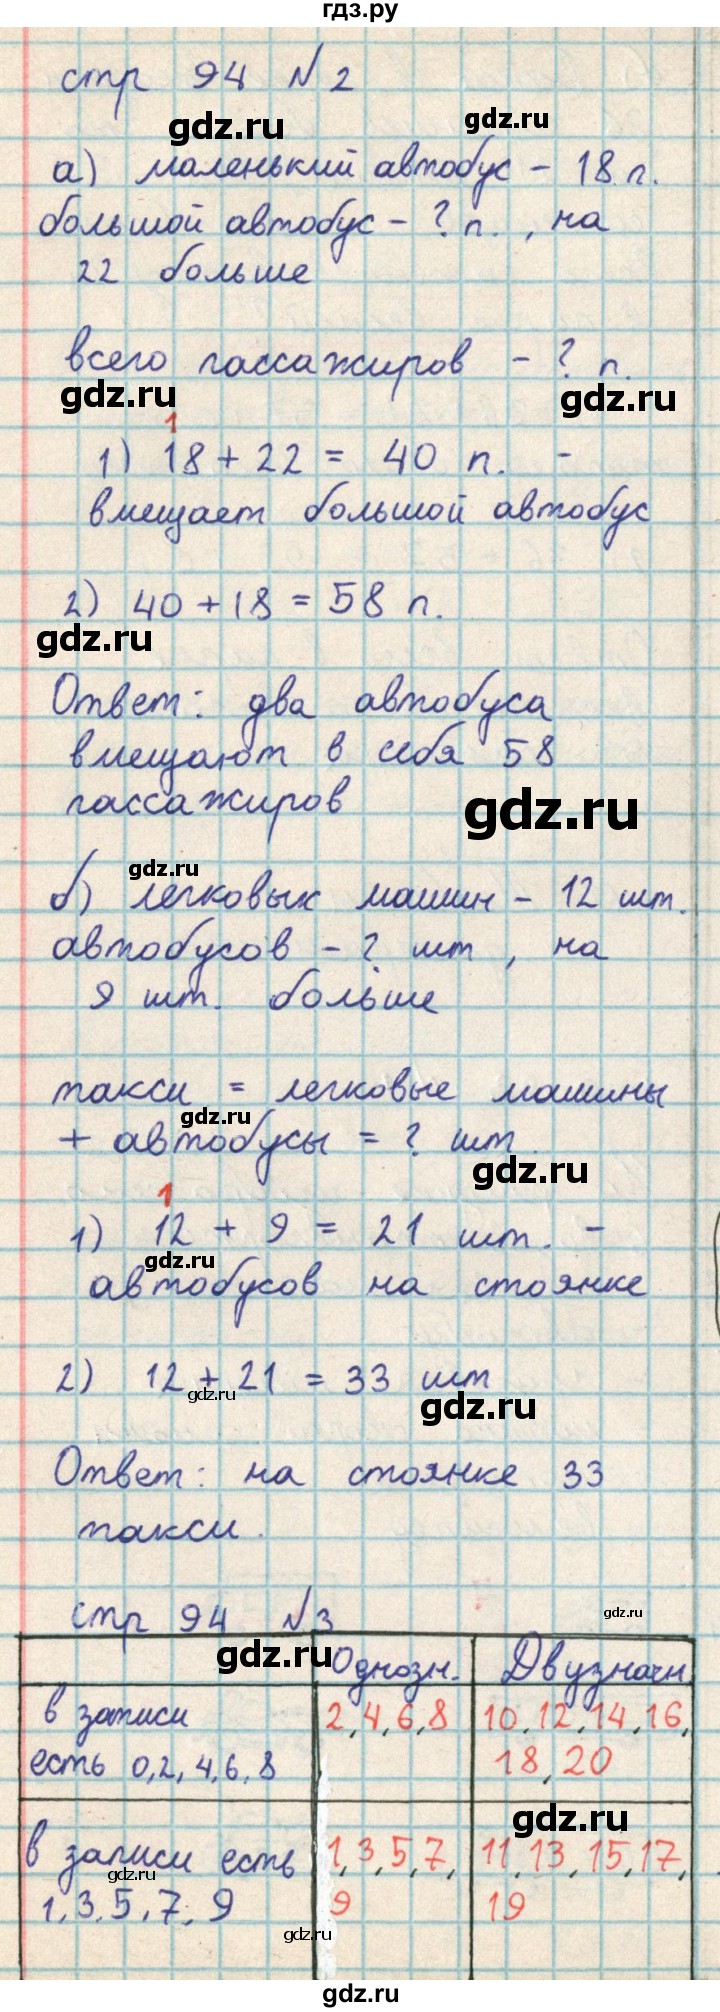 гдз.ру
стр 94 №2
gdz.ru
gdz.ru
а) маленький автобус - 18 п.
большой автобус - ? п., на
22 больше
всего пассажиров - ? п.
gdz.ru
gdz.ru
1
1) 18 + 22 = 40 п. -
вмещает большой автобус
2) 40 + 18 = 58 п.
gdz.ru
Ответ: два автобуса
вмещают в себя 58
пассажиров
gdz.ru
gdz.ru
б) легковых машин - 12 шт.
автобусов - ? шт, на
9 шт. больше
такси = легковые машины
gdz.ru
+ автобусы = ? шт.
gdz.ru
1
1) 12 + 9 = 21 шт. -
gdz.ru
автобусов на стоянке
2) 12 + 21 = 33 шт
gdz.ru
gdz.ru
Ответ: на стоянке 33
такси.
стр 94 №3
gdz.ru
gdz.ru
Однозн. Двузначн
в записи
есть 0,2,4,6,8
2,4,6,8
10,12,14,16,
18,20
gdz.ru
в записи есть
1,3,5,7,9
1,3,5,7,
9
11,13,15,17,
19
gdz.ru
gdz.ru
gdz.ru